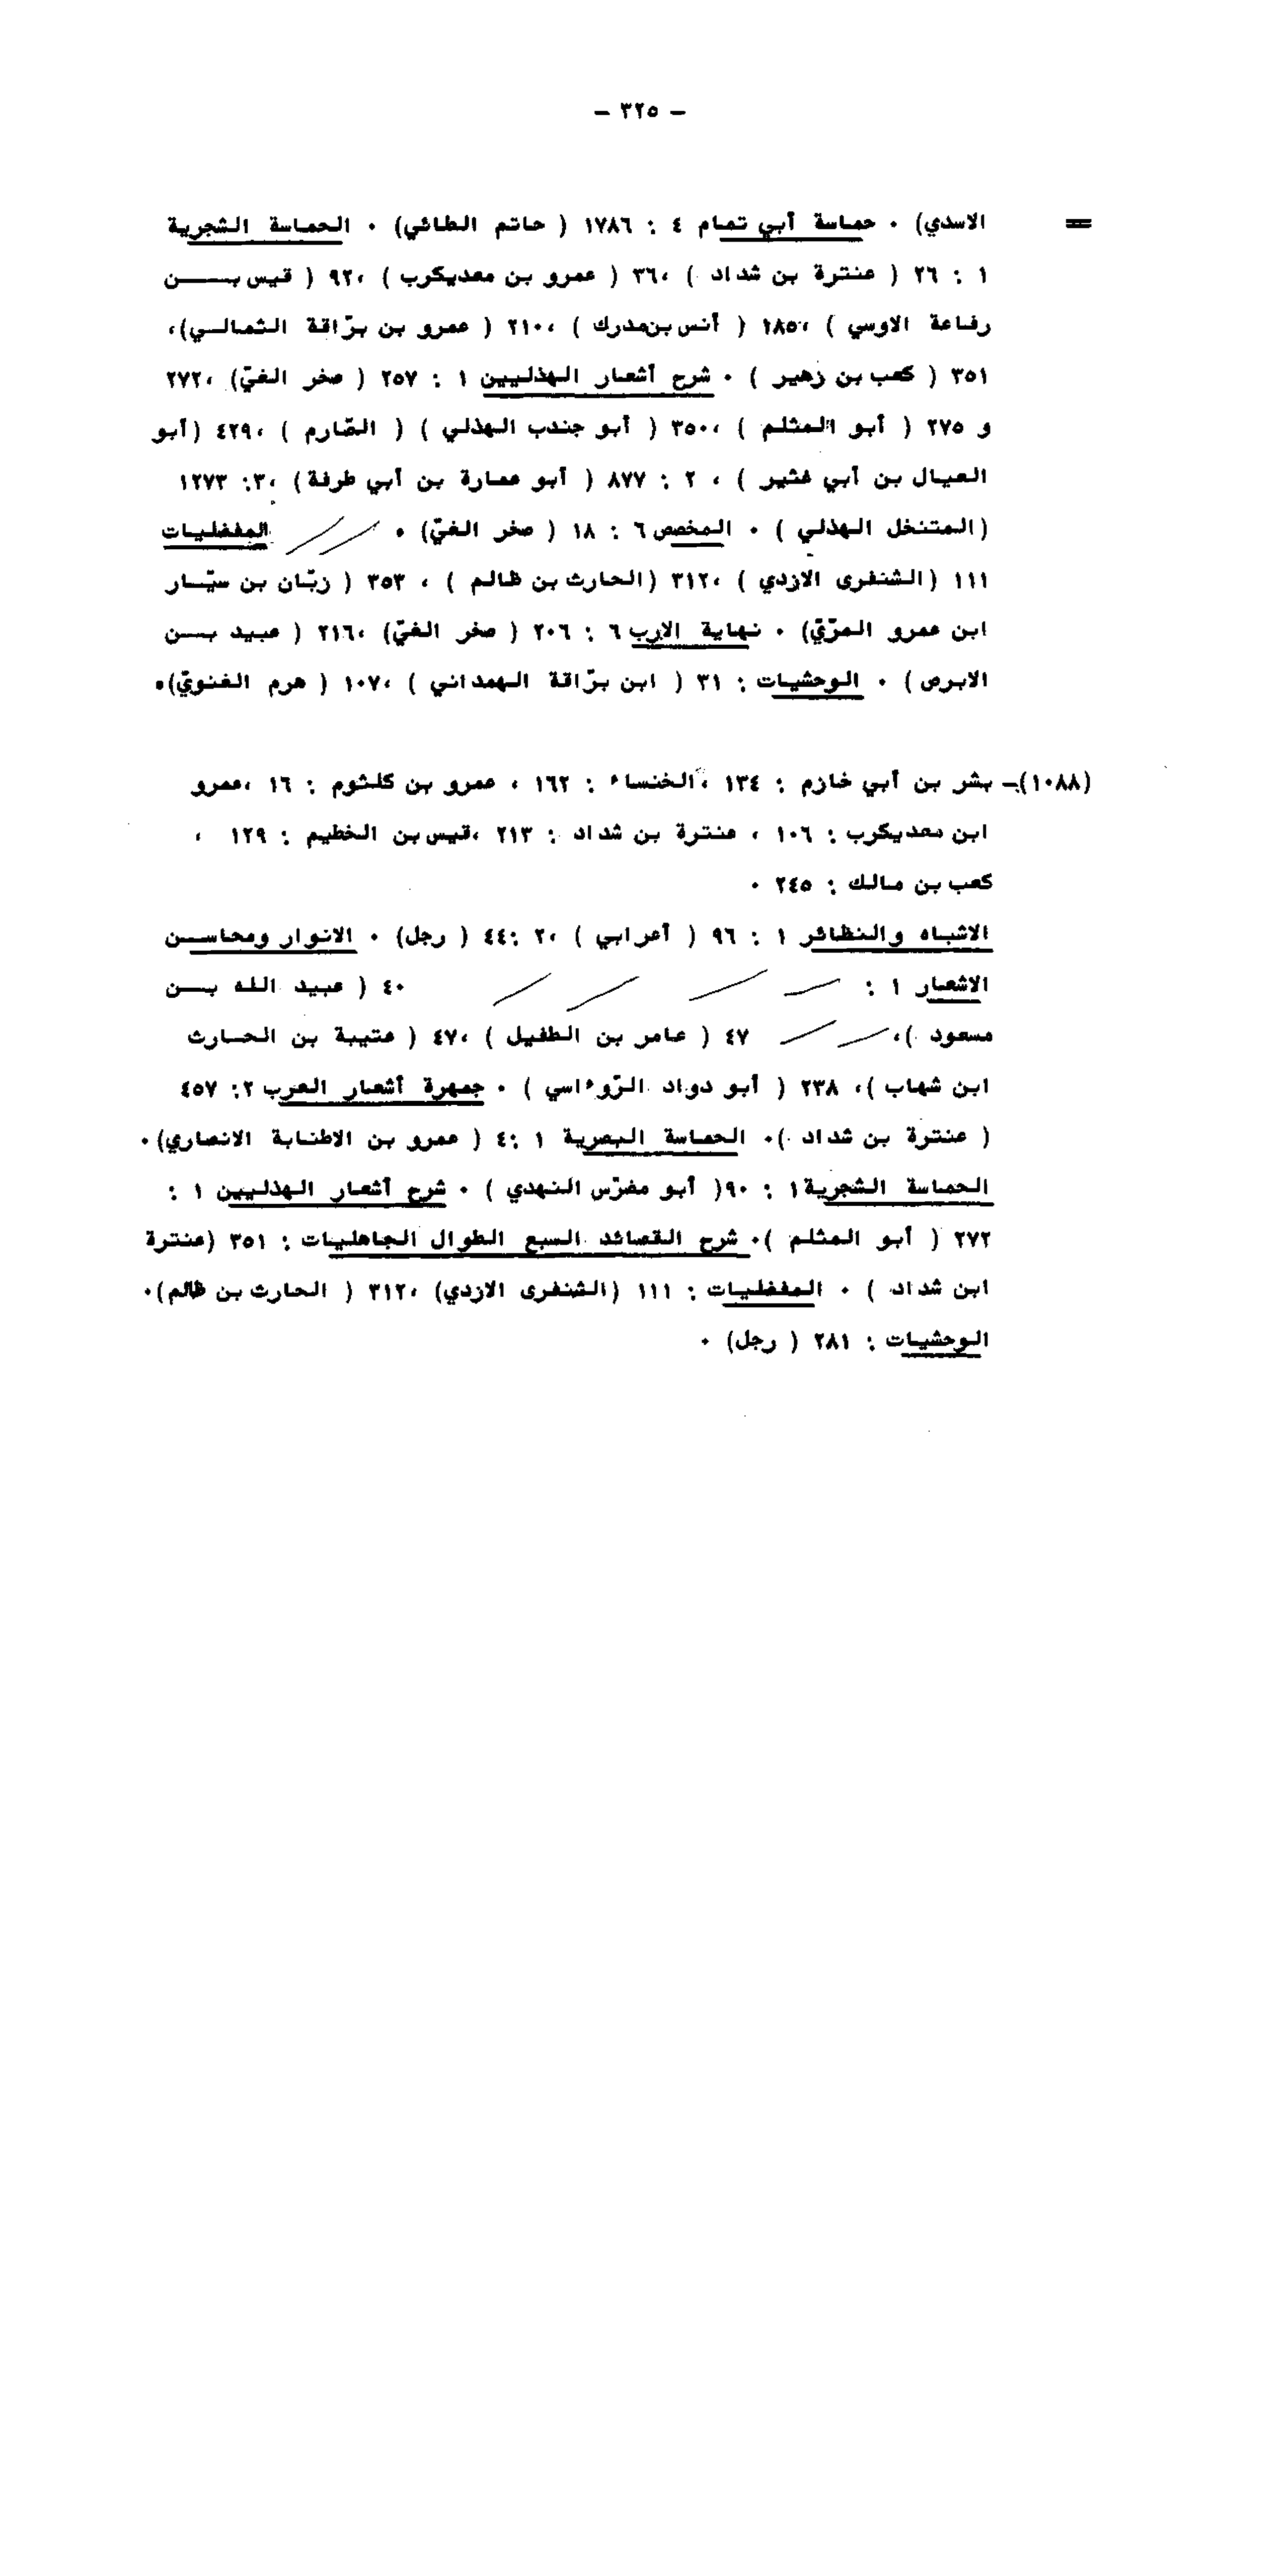 - ٣٢٥ -
= الاسدي) ٠ حماسة أبي تمام ٤ : ١٧٨٦ ( حاتم الطائي) ٠ الحماسة الشجرية
١ : ٢٦ ( عنترة بن شداد ) ،٣٦ ( عمرو بن معديكرب ) ،٩٢ ( قيس بـــــن
رفاعة الاوسي ) ،١٨٥ ( أنس بن مدرك ) ،٢١٠ ( عمرو بن برّاقة الثمالـي)،
٣٥١ ( كعب بن زهير ) ٠ شرح أشعار الهذليين ١ : ٢٥٧ ( صخر الغيّ) ،٢٧٢
و ٢٧٥ ( أبو المثلم ) ،٣٥٠ ( أبو جندب الهذلي ) ( الصّارم ) ،٤٢٩ (أبو
العيال بن أبي غثير ) ، ٢ : ٨٧٧ ( أبو عمارة بن أبي طرفة) ،٣: ١٢٧٣
(المتنخل الهذلي ) ٠ المخصص ٦ : ١٨ ( صخر الغيّ) ٠ المفضليات
١١١ (الشنفرى الازدي ) ،٣١٢ (الحارث بن ظالم ) ، ٣٥٣ ( زبّان بن سيّـار
ابن عمرو المرّيّ) ٠ نهاية الارب ٦ : ٢٠٦ ( صخر الغيّ) ،٢١٦ ( عبيد بــن
الابرص ) ٠ الوحشيات : ٣١ ( ابن برّاقة الهمداني ) ،١٠٧ ( هرم الغنويّ)٠
(١٠٨٨)- بشر بن أبي خازم : ١٣٤ ،الخنساء : ١٦٢ ، عمرو بن كلثوم : ١٦ ،عمرو
ابن معديكرب : ١٠٦ ، عنترة بن شداد : ٢١٣ ،قيس بن الخطيم : ١٢٩ ،
كعب بن مالك : ٢٤٥ ٠
الاشباه والنظائر ١ : ٩٦ ( أعرابي ) ،٢ :٤٤ ( رجل) ٠ الانوار ومحاســن
الاشعار ١ : ٤٠ ( عبيد الله بــن
مسعود )، ٤٧ ( عامر بن الطفيل ) ،٤٧ ( عتيبة بن الحـارث
ابن شهاب )، ٢٣٨ ( أبو دواد الرّوءاسي ) ٠ جمهرة أشعار العرب ٢: ٤٥٧
( عنترة بن شداد )٠ الحماسة البصرية ١ :٤ ( عمرو بن الاطنابة الانصاري)٠
الحماسة الشجرية ١ : ٩٠( أبو مضرّس النهدي ) ٠ شرح أشعار الهذليين ١ :
٢٧٢ ( أبو المثلم )٠ شرح القصائد السبع الطوال الجاهليات : ٣٥١ (عنترة
ابن شداد ) ٠ المفضليات : ١١١ (الشنفرى الازدي) ،٣١٢ ( الحارث بن ظالم)٠
الوحشيات : ٢٨١ ( رجل) ٠